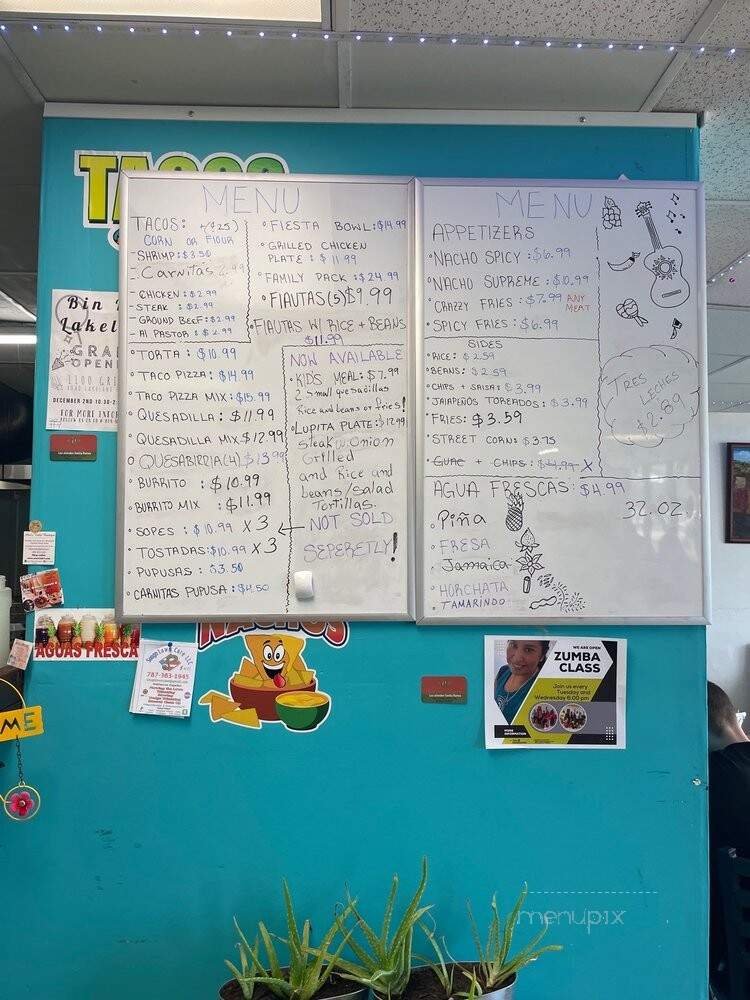 TACOS
MENU
TACOS: +(.25¢)
CORN OR FlOUR
- SHRIMP: $3.50
- Carnitas 2.99
- CHICKEN: $2.99
- STEAK : $2.99
- GROUND BEEF: $2.99
- Al PASTOR : $2.99
• TORTA : $10.99
• TACO PIZZA: $14.99
• TACO PIZZA MIX: $15.99
• QUESADILLA : $11.99
• QUESADILLA MIX $12.99
• QUESABIRRIA(4) $13.99
• BURRITO : $10.99
• BURRITO MIX : $11.99
• SOPES : $10.99 X 3
• TOSTADAS: $10.99 X 3
• PUPUSAS : $3.50
CARNITAS PUPUSA : $4.50
• FIESTA BOWL: $14.99
• GRILLED CHICKEN
PLATE : $11.99
• FAMILY PACK : $24.99
• FlAUTAS(5) $9.99
• FlAUTAS W/ RICE + BEANS
$11.99
NOW AVAILABLE
• KID'S MEAL: $7.99
2 small quesadillas
Rice and beans or fries!
• LUPITA PLATE: $12.99
steak w. Onion
Grilled
and Rice and
beans/salad
Tortillas.
NOT SOLD
SEPERETLY!
MENU
APPETIZERS
• NACHO SPICY : $6.99
• NACHO SUPREME : $10.99
• CRAZZY FRIES : $7.99 ANY
MEAT
• SPICY FRIES : $6.99
SIDES
• RICE: $2.59
• BEANS: $2.59
• CHIPS + SALSA: $3.99
• JALAPEÑOS TOREADOS: $3.99
• FRIES: $3.59
• STREET CORN: $3.75
• GUAC + CHIPS: $4.99 X
TRES
LECHES
$2.89
AGUA FRESCAS: $4.99
32.OZ.
• Piña
• FRESA
• Jamaica
• HORCHATA
• TAMARINDO
Bin
Lakel
GRA
OPEN
DECEMBER 2ND 10:30-2
FOR MORE INFO
AGUAS FRESCA
787-383-1945
NACHOS
WE ARE OPEN
ZUMBA
CLASS
Join us every
Tuesday and
Wednesday 6:00 pm
MORE
INFORMATION
ME
menupix